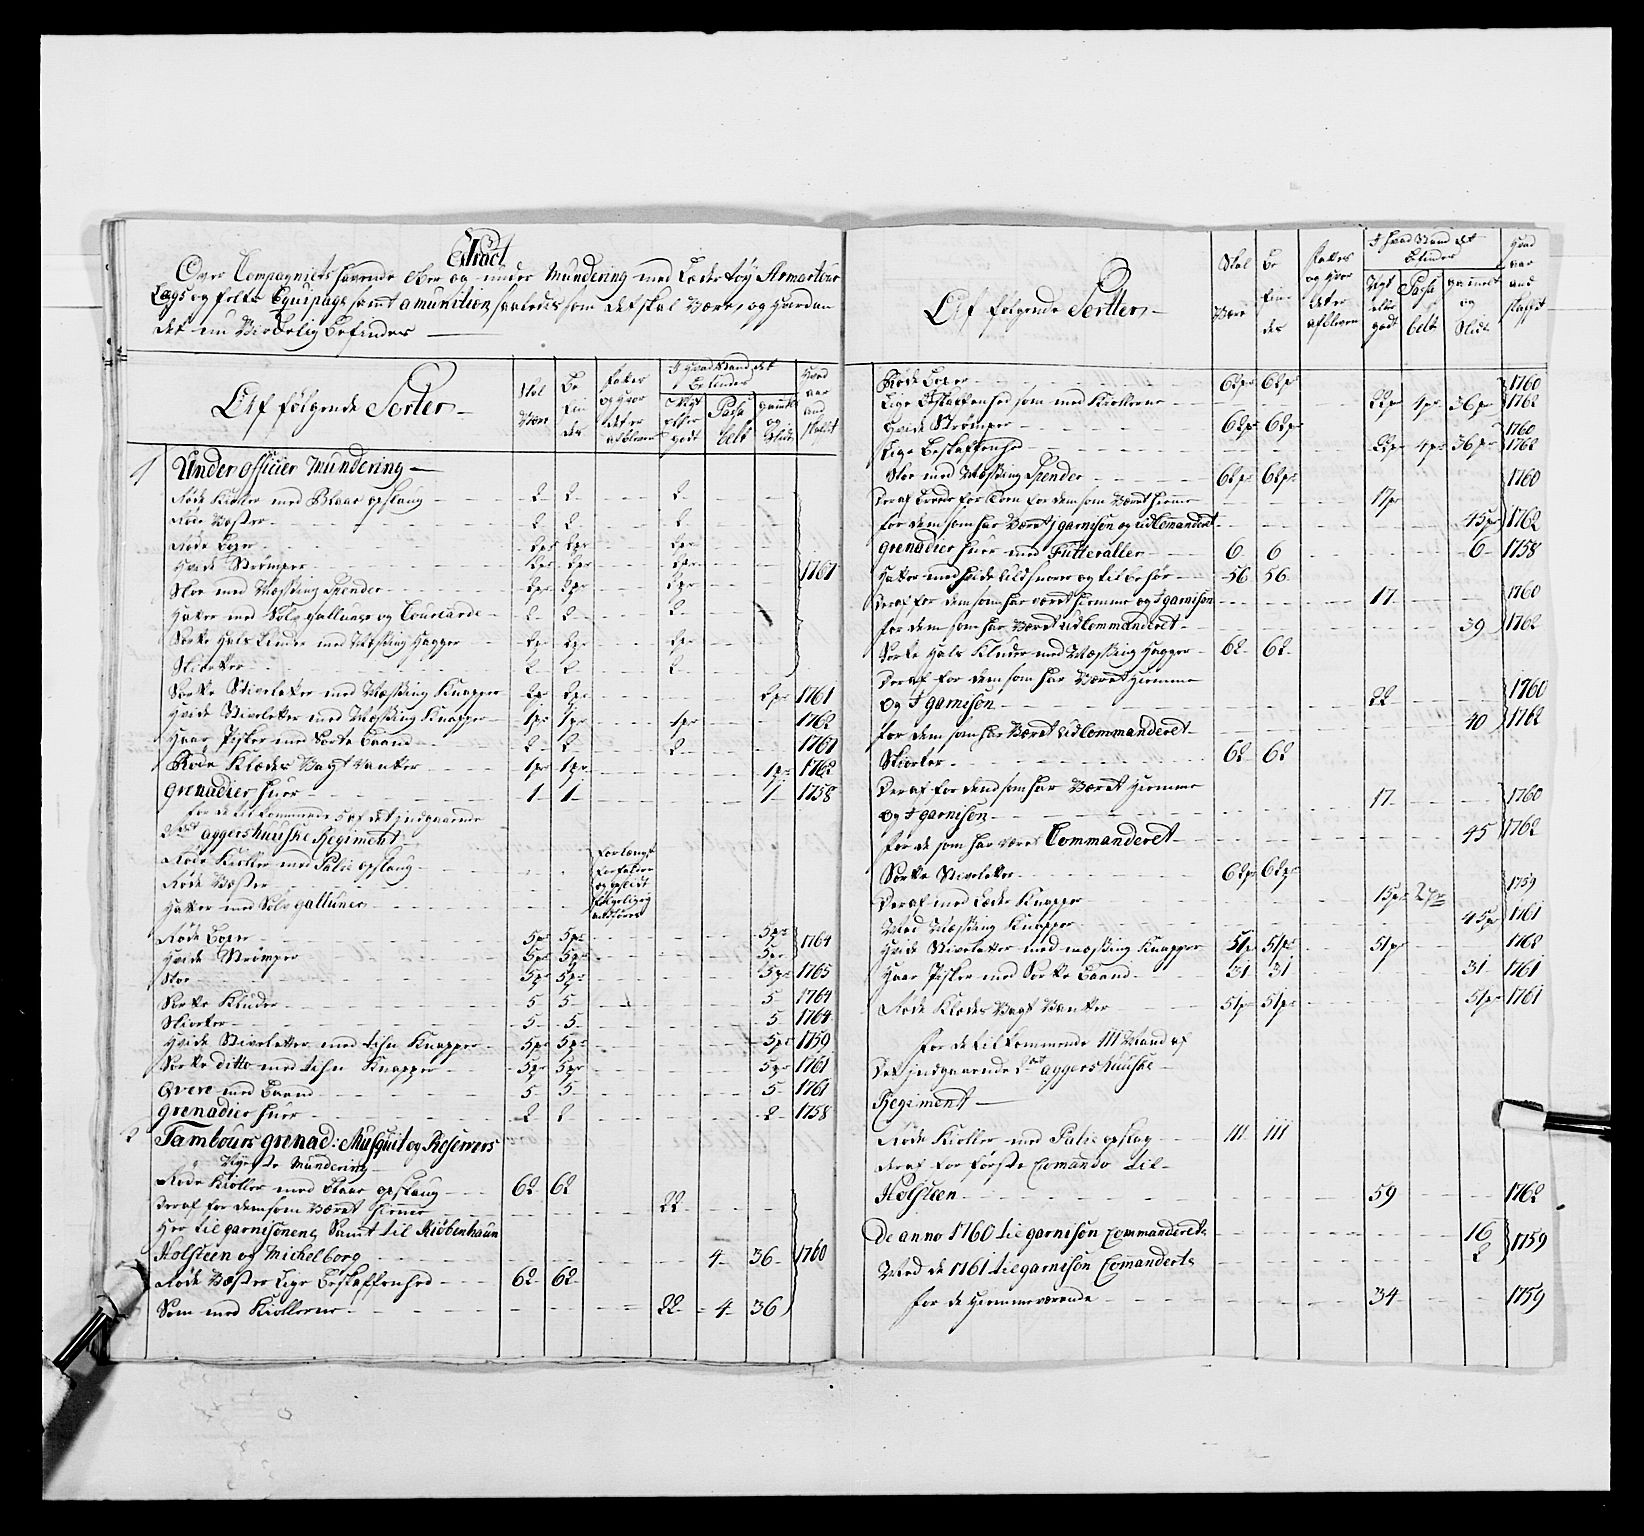 Extract
Over Compagniets havende Ober og under Mundering med Læder tøy Armartour
Lags og felts Equipage samt amunition saaledes som det skal Være, og hvordan
det nu Virkelig befindes —
Af følgende Sorter — Skal Være Befindes fattes og hvor det er afbleven I hvad Stand det befindes Nÿt eller godt Passabelt gammelt og Slidt Hvad aar anskaffet
1 Under officier Mundering —
Røde Kioler med Blaae opslaug 2 2 2
Røde Væster 2 2 2
Røde Boxer 2pr 2pr 2pr
Hvide Strømper 2pr 2pr 2pr 1761
Skoe med Messing Spender 2pr 2pr 2pr
Hatter med Sølv galluner og Coucarde 2 2 2
Sorte Hals Binder med Messing Hagger 2pr 2pr 2pr
Skiorter 2 2 2
Sorte Stivletter med Messing Knapper 2pr 2pr 2pr 1761
Hvide Stivletter med Messing Knapper 1pr 1pr 1pr 1762
Haar Pisker med Sorte Baand 2 2 2 1761
Røde Klædes Vagt Vanter 1pr 1pr 1pr 1762
grenadier huer 1 1 1 1758
for de til kommende 5 af det indgaaende
2det aggershuuske Regiment
Røde Kioller med Palie opslaug
Røde Væster
Hatter med Sølv galluner
Røde Boxer 5pr 5pr 5pr
Hvide Strømper 5pr 5pr 5pr 1764
Skoe 5pr 5pr 5pr 1765
Sorte Klüder 5 5 5 1764
Skiorter 5 5 5 1764
Hvide Stivletter med tihn Knapper 5pr 5pr 5pr 1759
Sorte ditto med tihn Knapper 5pr 5pr 5pr 1761
Qvere med Baand 5 5 5 1761
grenadier huer 2 2 2 1758
2 Tambours grenad: Musquit og Reserves
Nyeste Mundering
Røde Kioller med Blaae opslaug 62 62
Deraf for dem som Været hiemme 22
Her til garnisonene, Samt til Kiøbenhaun
Holsteen og Michelborg 4 36 1760
Røde Væster Lige Beskaffenhed 62 62
Som med Kiollerne 22 4 36
Af følgende Sortter — Skal Være Befindes fattes og hvor det er afbleven I hvad Stand det befindes Nÿt eller godt Passabelt gammelt og Slidt Hvad aar anskaffet
Røde Boxer 62pr 62pr 1760
Lige Beskaffenhed som med Kiollerne 22pr 4pr 36pr 1762
Hvide Strømper 62pr 62pr 1760
Lige Beskaffenhed 22pr 4pr 36pr 1762
Skoe med Messing Spender 62pr 62pr 1760
Deraf for dem som Været hiemme 17pr
for dem som har Været i garnison og udComanderet 45pr 1762
grenadier huer med Futteraller 6 6 6 1758
Hatter med hvide uldsnorer og tilbehør 56 56
Deraf for dem som har været hiemme og I garnison 17 1760
for dem som har Været udCommanderet 39 1762
Sorte Hals Klüder med Messing Hagger 62 62
Deraf for dem som har Været hiemme
og I garnison 22 1760
for dem som har Været udCommanderet 40 1762
Skiorter 62 62
Deraf for dem som har Været hiemme
og I garnison 17 1760
for de som har været Commanderet 45 1762
Sorte Stivletter 62pr 62pr
Deraf med Læder Knapper 15pr 2pr 1759
Med Messing Knapper 45pr 1761
Hvide Stivletter med messing Knapper 51pr 51pr 51pr 1762
Haar Pisker med Sorte Baand 31 31 31 1761
Røde Klædes Vagt Vanter 51pr 51pr 51pr 1761
for de tilkommende 111 Mand af
Det indgaaende 2det aggershuuske
Regiment —
Røde Kioller med Palie opslag 111 111
deraf for første Comando til
Holsteen 59 1762
De anno 1760 til garnison Commanderets 16
Med de 1761 til garnison Comanderets 2 1759
for de hiemmeværende 34 1759